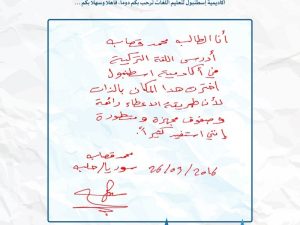 أكاديمية إسطنبول لتعليم اللغات ترحب بكم دوماً، فأهلاً وسهلاً بكم...
أنا الطالب محمد قصاب
أدرس اللغة التركية
في أكاديمية اسطنبول
اخترت هذا المكان بالذات
لأن طريقة الاعطاء رائعة
وصفوف مجهزة ومتطورة
إنني استفيد كثيراً.
محمد قصاب
سوريا/حلب 26/03/2016